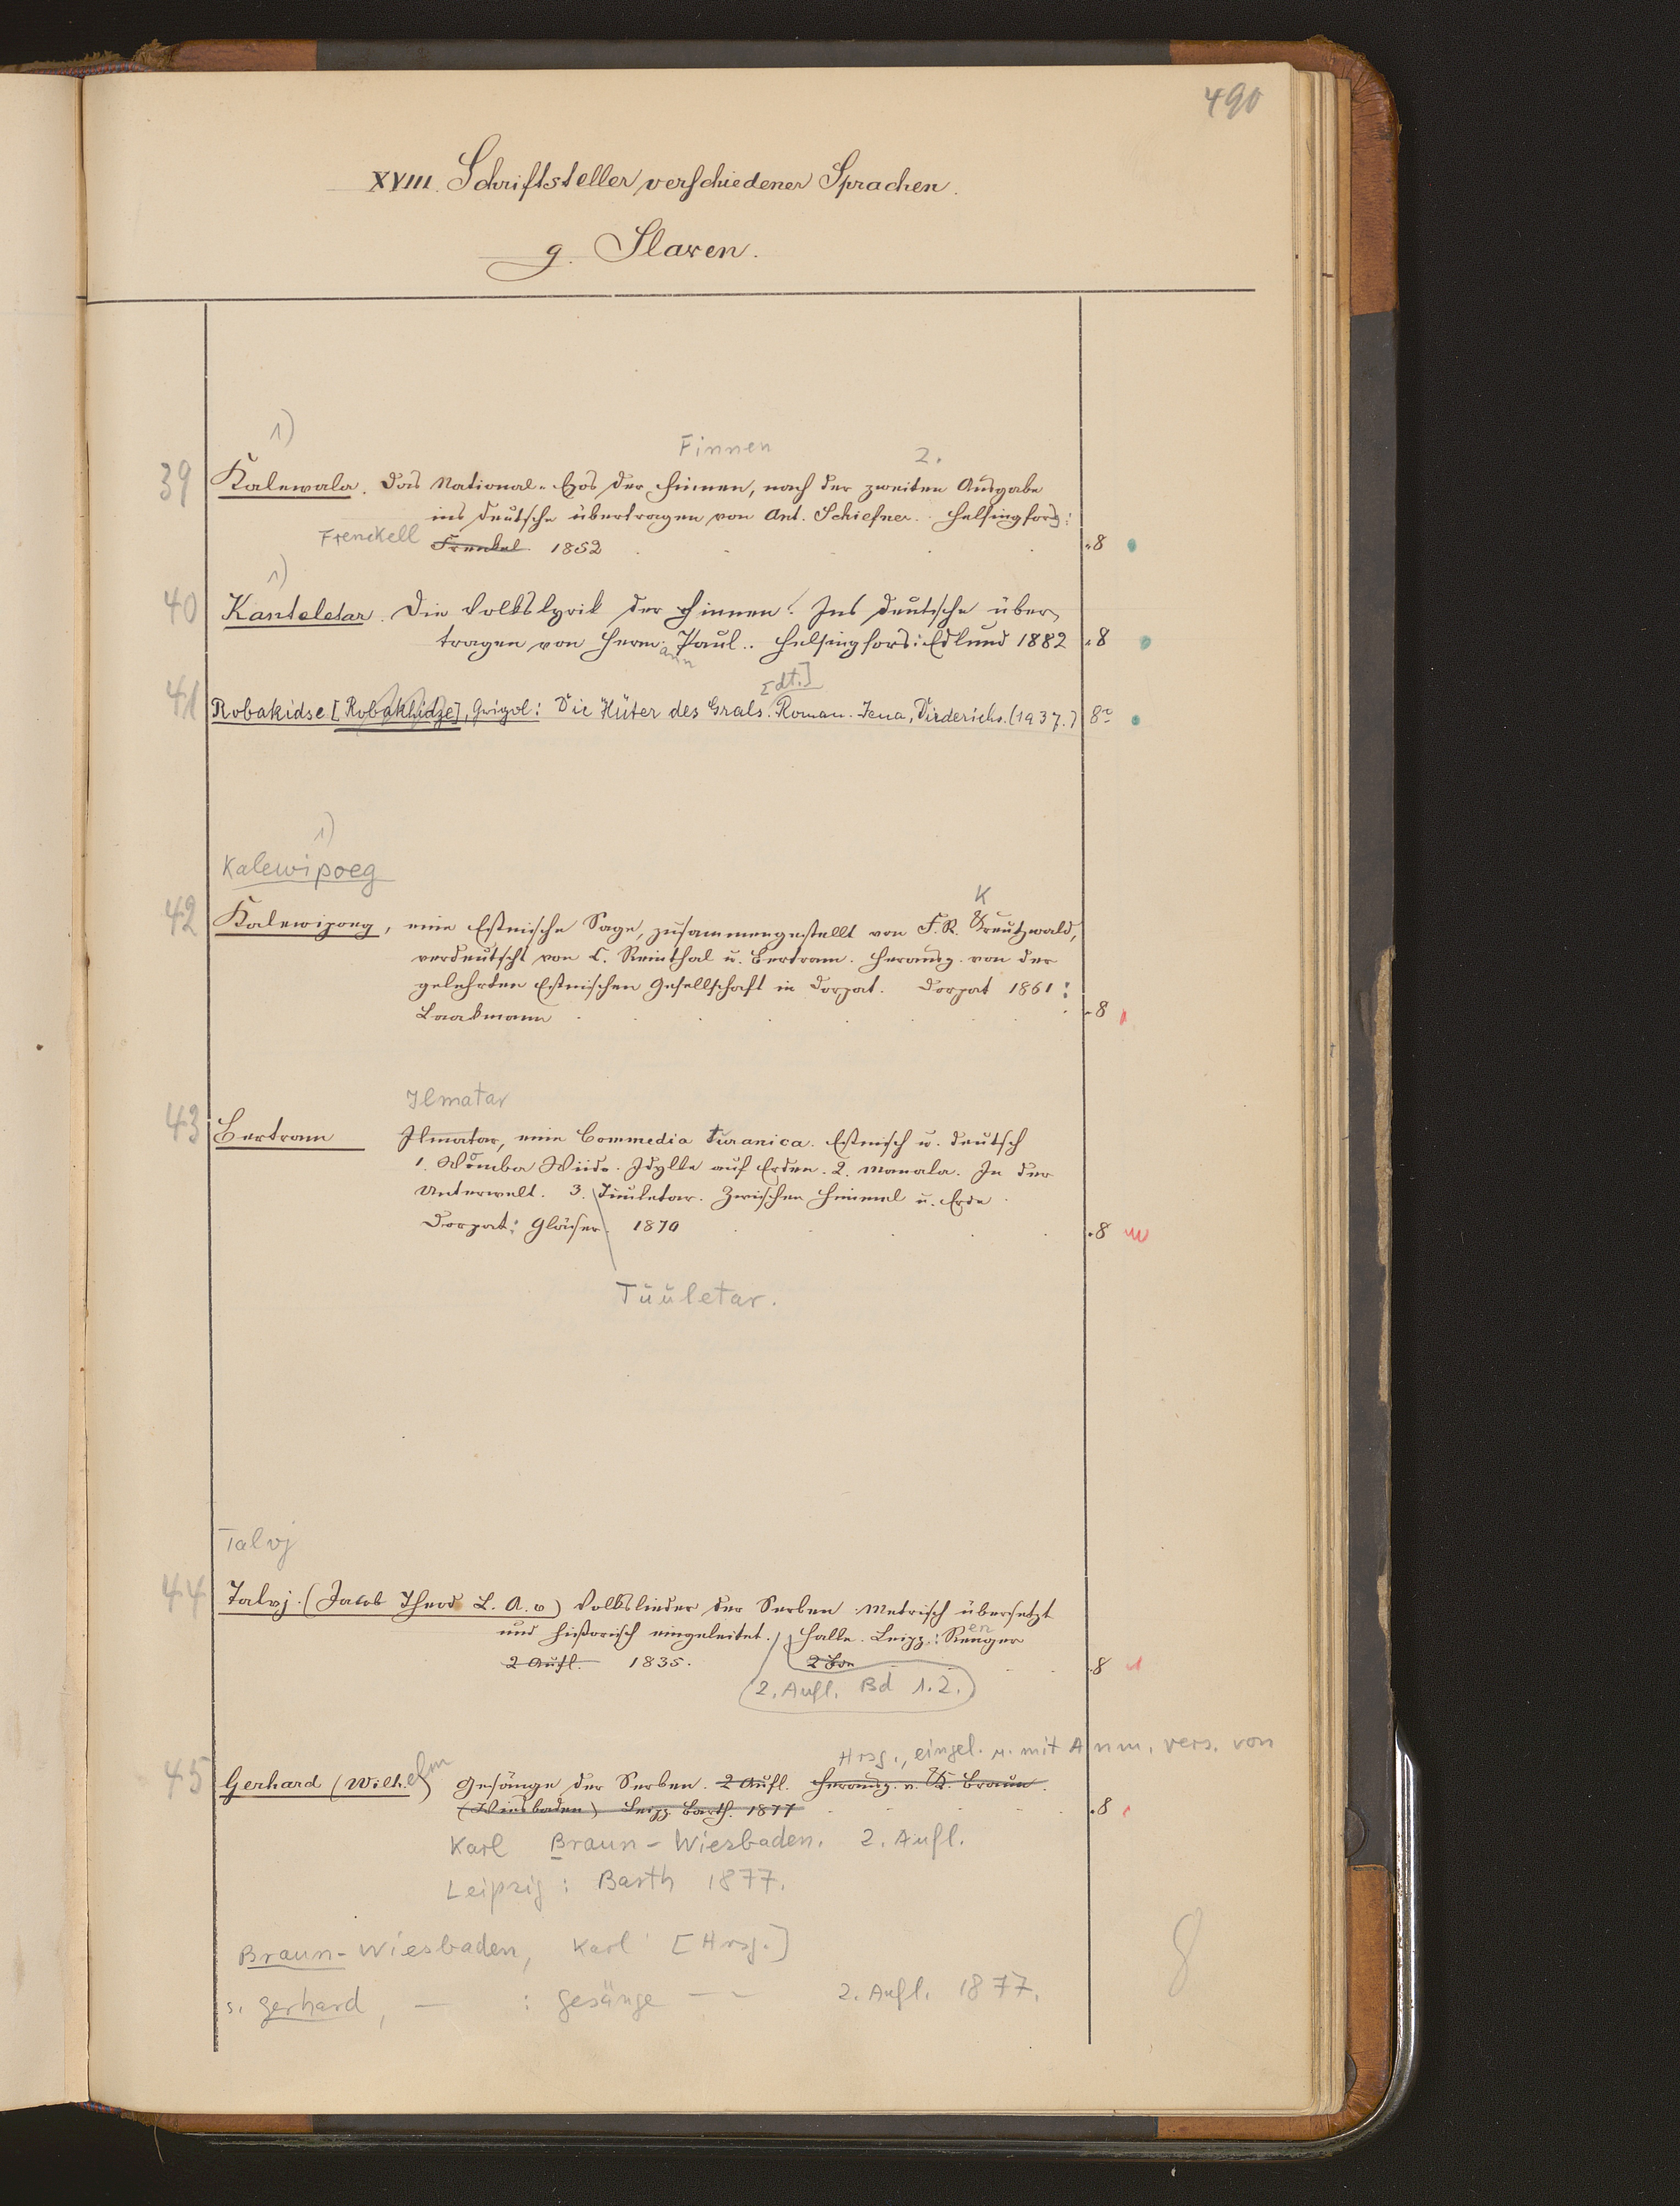 490
XVIII. Schriftsteller verschiedener Sprachen.
g. Slaven.
1)
Finnen
2.
39 Kalewala. Das National-Epos der Finnen, nach der zweiten Ausgabe
ins Deutsche übertragen von Ant. Schiefner. Helsingfors:
Frenckell Frenkel. 1852 8
1)
40 Kanteletar. Die Volkslyrik der Finnen. Ins Deutsche über-
tragen von Herm. Paul.. Helsingfors: Edlund 1882 8
ann
[dt.]
41 Robakidse [Robakhidze], Grigol: Die Hüter des Grals. Roman. Jena, Diederichs. (1937.) 8°
1)
Kalewipoeg
K
42 Kalewipoeg, eine Estnische Sage, zusammengestellt von F. R. Kreutzwald,
verdeutscht von C. Reinthal u. Bertram. Herausg. von der
gelehrten Estnischen Gesellschaft in Dorpat. Dorpat 1861:
Laakmann 8
Ilmatar
43 Bertram Ilmatar, eine Commedia turanica. Estnisch u. deutsch
1. Womba Wiido. Idylle auf Erden. 2. Manala. In der
Unterwelt. 3. Tuuletar. Zwischen Himmel u. Erde
Dorpat: Gläser. 1870 8
Tuuletar.
Talvj
44 Talvj. (Jacob Theod. L. A. v) Volkslieder der Serben. Metrisch übersetzt
und historisch eingeleitet. Halle. Leipz.: Renger
en
2 Aufl. 1835. 2 Bde 8
2. Aufl. Bd 1.2.
Hrsg., eingel. u. mit Anm. vers. von
45 Gerhard (Wilh.elm) Gesänge der Serben. 2 Aufl. Herausg. v. K. Braun.
(Wiesbaden) Leipz. Barth. 1877 8
Karl Braun-Wiesbaden. 2. Aufl.
Leipzig: Barth 1877.
Braun-Wiesbaden, Karl [Hrsg.]
s. Gerhard, — : Gesänge — — 2. Aufl. 1877.
8